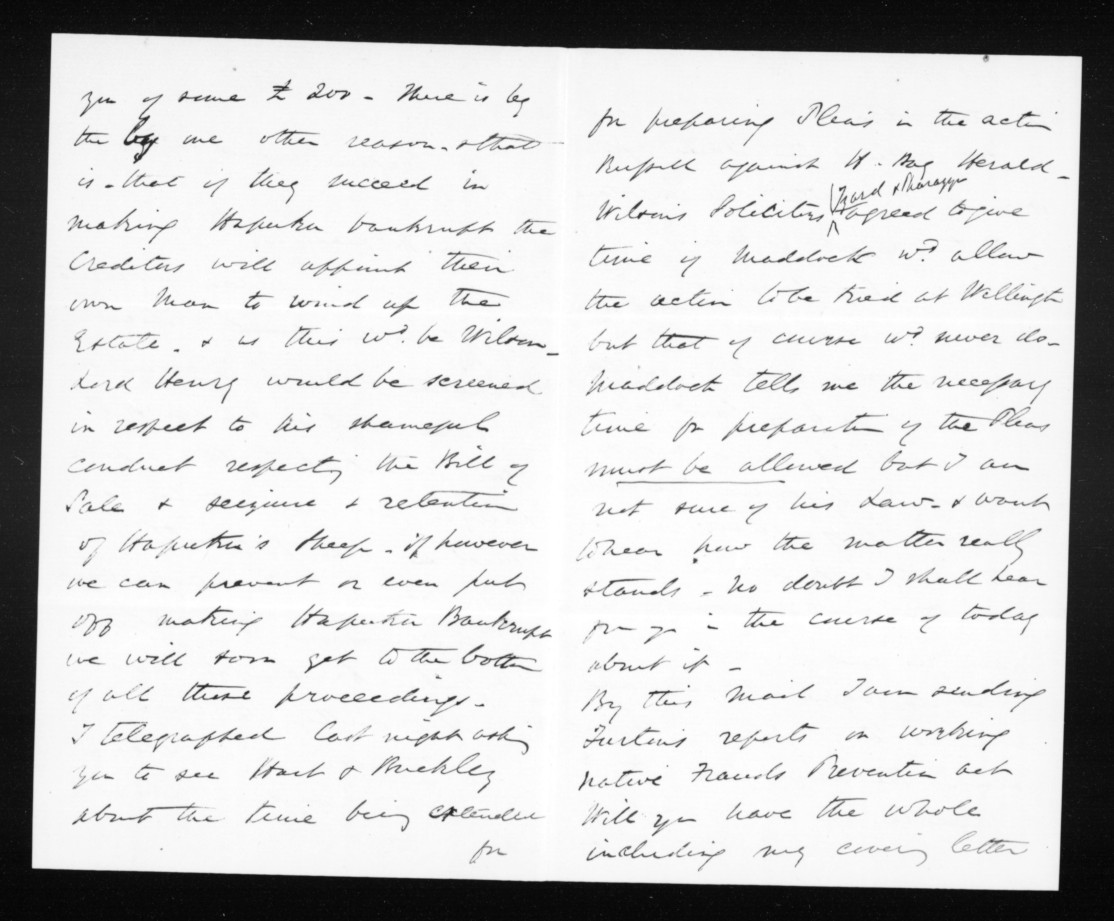 you of some £200 - There is by
the by one other reason - & that
is - that if they succeed in
making Hapuku bankrupt the
Creditors will appoint their
own man to wind up the
Estate - & as this wd. be Wilson -
Lord Henry would be screened
in respect to his shameful
conduct respecting the Bill of
Sale & seizure & retention
of Hapuku's sheep - if however
we can prevent or even put
off making Hapuku Bankrupt
we will soon get to the bottom
of all these proceedings -
I telegraphed last night asking
you to see Hart & Buckley
about the time being extended
for
for preparing Pleas in the action
Russell against H. Bay Herald -
Wilson's Solicitors agreed to give
time if Maddock wd allow
the action to be tried at Wellington
but that of course wd never do -
Maddock tells me the necessary
time for preparation of the Pleas
must be allowed but I am
not sure of his Law - & want
to hear how the matter really
stands - no doubt I shall hear
from you in the course of today
about it -
By this mail I am sending
Turton's reports on working
native Frauds Prevention act
Will you have the whole
including my covering letter